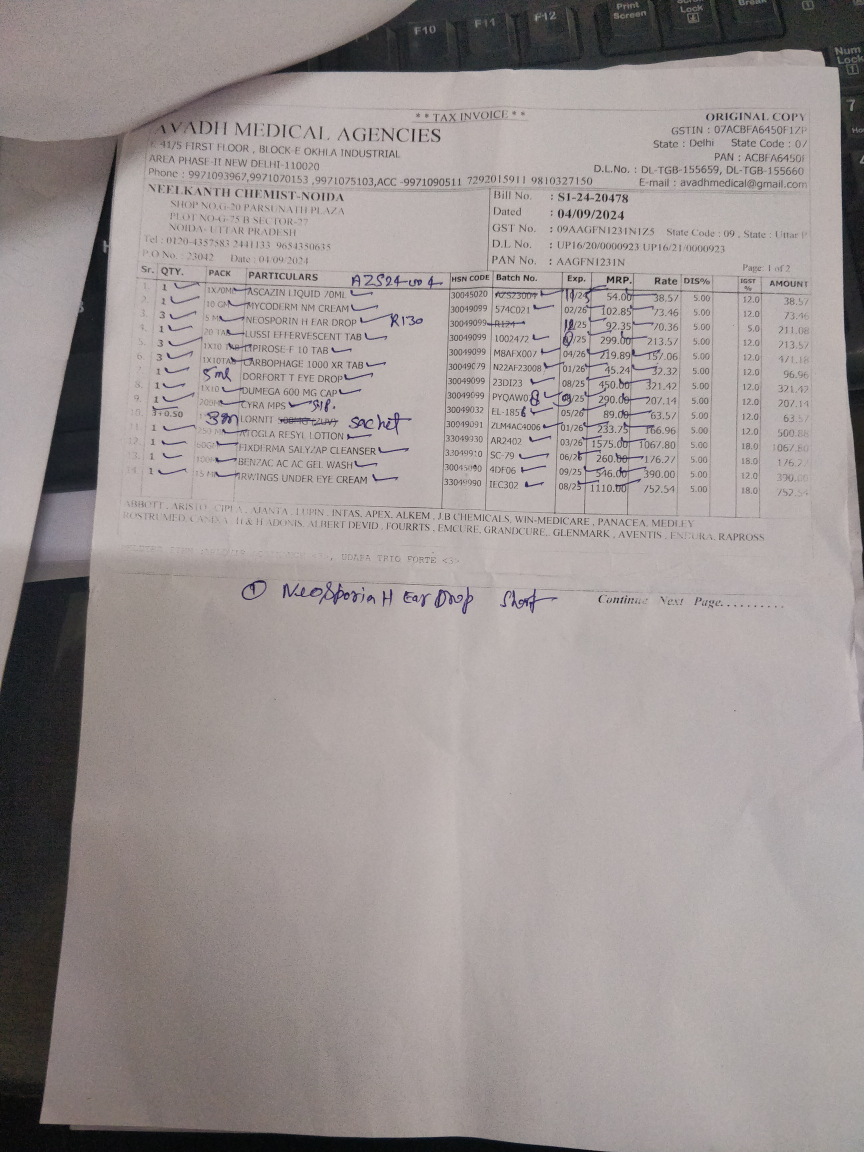 F10 F11 F12 Print Screen Scroll Lock Break
Num Lock
7
** TAX INVOICE **
ORIGINAL COPY
AVADH MEDICAL AGENCIES
GSTIN : 07ACBFA6450F1ZP
41/5 FIRST FLOOR , BLOCK-E OKHLA INDUSTRIAL
State : Delhi State Code : 07
AREA PHASE-II NEW DELHI-110020
PAN : ACBFA6450F
D.L.No. : DL-TGB-155659, DL-TGB-155660
Phone : 9971093967,9971070153 ,9971075103,ACC -9971090511 7292015911 9810327150
E-mail : avadhmedical@gmail.com
NEELKANTH CHEMIST-NOIDA
Bill No. : S1-24-20478
SHOP NO.G-20 PARSUNATH PLAZA
Dated : 04/09/2024
PLOT NO-G-75 B SECTOR-27
GST No. : 09AAGFN1231N1Z5 State Code : 09 , State : Uttar P
NOIDA- UTTAR PRADESH
D.L No. : UP16/20/0000923 UP16/21/0000923
Tel : 0120-4357583 2441133 9654350635
PAN No. : AAGFN1231N
P.O No. : 23042 Date : 04-09-2024
Page: 1 of 2
Sr. QTY. PACK PARTICULARS AZS24004 HSN CODE Batch No. Exp. MRP. Rate DIS% IGST % AMOUNT
1. 1 1X70ML ASCAZIN LIQUID 70ML 30045020 AZS23004 54.00 38.57 5.00 12.0 38.57
2. 1 10 GM MYCODERM NM CREAM 30049099 574C021 02/26 102.85 73.46 5.00 12.0 73.46
3. 3 5 ML NEOSPORIN H EAR DROP R130 30049099 R124 92.35 70.36 5.00 5.0 211.08
4. 1 20 TAB LUSSI EFFERVESCENT TAB 30049099 1002472 299.00 213.57 5.00 12.0 213.57
5. 3 1X10 TAB LIPIROSE-F 10 TAB 30049099 M8AFX007 04/26 219.89 157.06 5.00 12.0 471.18
6. 3 1X10TAB CARBOPHAGE 1000 XR TAB 30049079 N22AF23008 01/26 45.24 32.32 5.00 12.0 96.96
7. 1 5ml DORFORT T EYE DROP 30049099 23DI23 08/25 450.00 321.42 5.00 12.0 321.42
8. 1 1X10 DUMEGA 600 MG CAP 30049099 290.00 207.14 5.00 12.0 207.14
9. 1 200ML CYRA MPS syp. 30049032 05/26 89.00 63.57 5.00 12.0 63.57
10. 3+0.50 LORNIT sachet 30049091 ZLM4AC4006 01/26 233.75 166.96 5.00 12.0 500.88
11. 1 ATOGLA RESYL LOTION 33049930 AR2402 03/26 1575.00 1067.80 5.00 18.0 1067.80
12. 1 60GM FIXDERMA SALYZAP CLEANSER 33049910 SC-79 06/26 260.00 176.27 5.00 18.0 176.27
13. 1 BENZAC AC AC GEL WASH 4DF06 09/25 546.00 390.00 5.00 12.0 390.00
14. 1 15 ML ARWINGS UNDER EYE CREAM 33049990 IEC302 08/25 1110.00 752.54 5.00 18.0 752.54
ABBOTT, ARISTO, CIPLA , AJANTA , LUPIN , INTAS, APEX, ALKEM , J.B CHEMICALS, WIN-MEDICARE , PANACEA, MEDLEY
H & H ADONIS, ALBERT DEVID , FOURRTS , EMCURE, GRANDCURE,. GLENMARK , AVENTIS , ENCURA, RAPROSS
UDAPA TRIO FORTE <3>
① Neosporin H Ear Drop Short
Continue Next Page..........